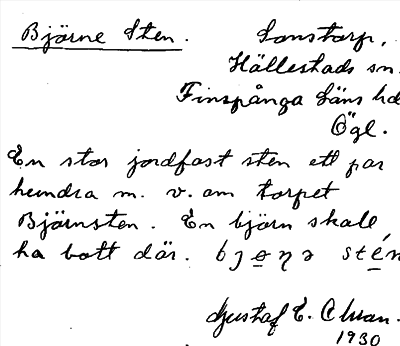 Björne Sten. Sonstorp,
Hällestads sn.
Finspånga läns hd
Ögl.
En stor jordfast sten ett par
hundra m. v. om torpet
Björnsten. En björn skall
ha bott där. bjøṇə stén
Gustaf E.
1930